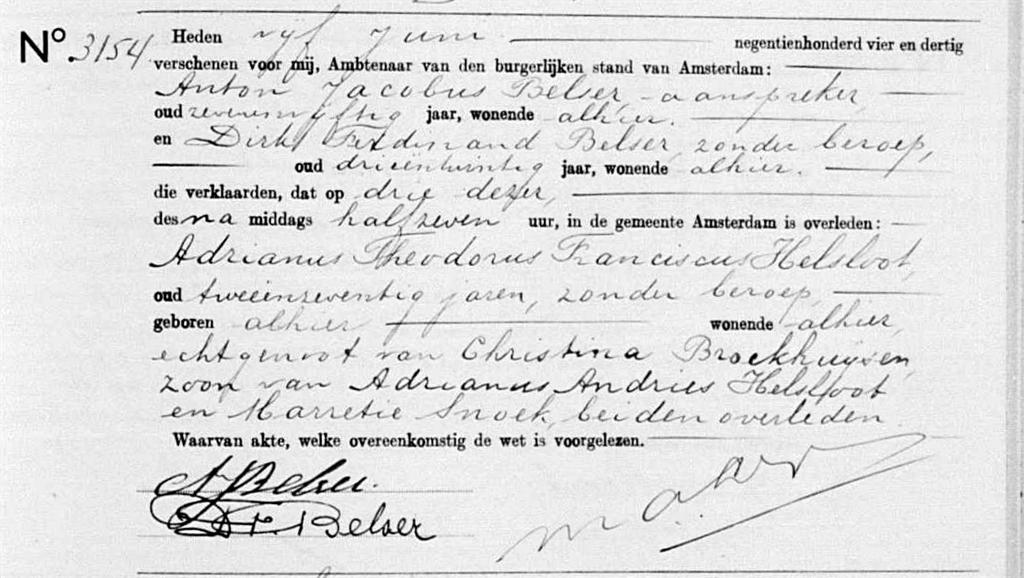 Nº 3154 Heden vyf Juni negentienhonderd vier en dertig
verschenen voor mij, Ambtenaar van den burgerlijken stand van Amsterdam:
Anton Jacobus Belser, aanspreker,
oud zevenenvyftig jaar, wonende alhier.
en Dirk Ferdinand Belser, zonder beroep,
oud drieëntwintig jaar, wonende alhier.
die verklaarden, dat op drie dezer,
des na middags halfzeven uur, in de gemeente Amsterdam is overleden:
Adrianus Theodorus Franciscus Helsloot,
oud tweeënzeventig jaren, zonder beroep,
geboren alhier wonende alhier,
echtgenoot van Christina Broekhuysen,
zoon van Adrianus Andries Helsloot
en Marretie Snoek, beiden overleden.
Waarvan akte, welke overeenkomstig de wet is voorgelezen.
A J Belser.
D. F. Belser